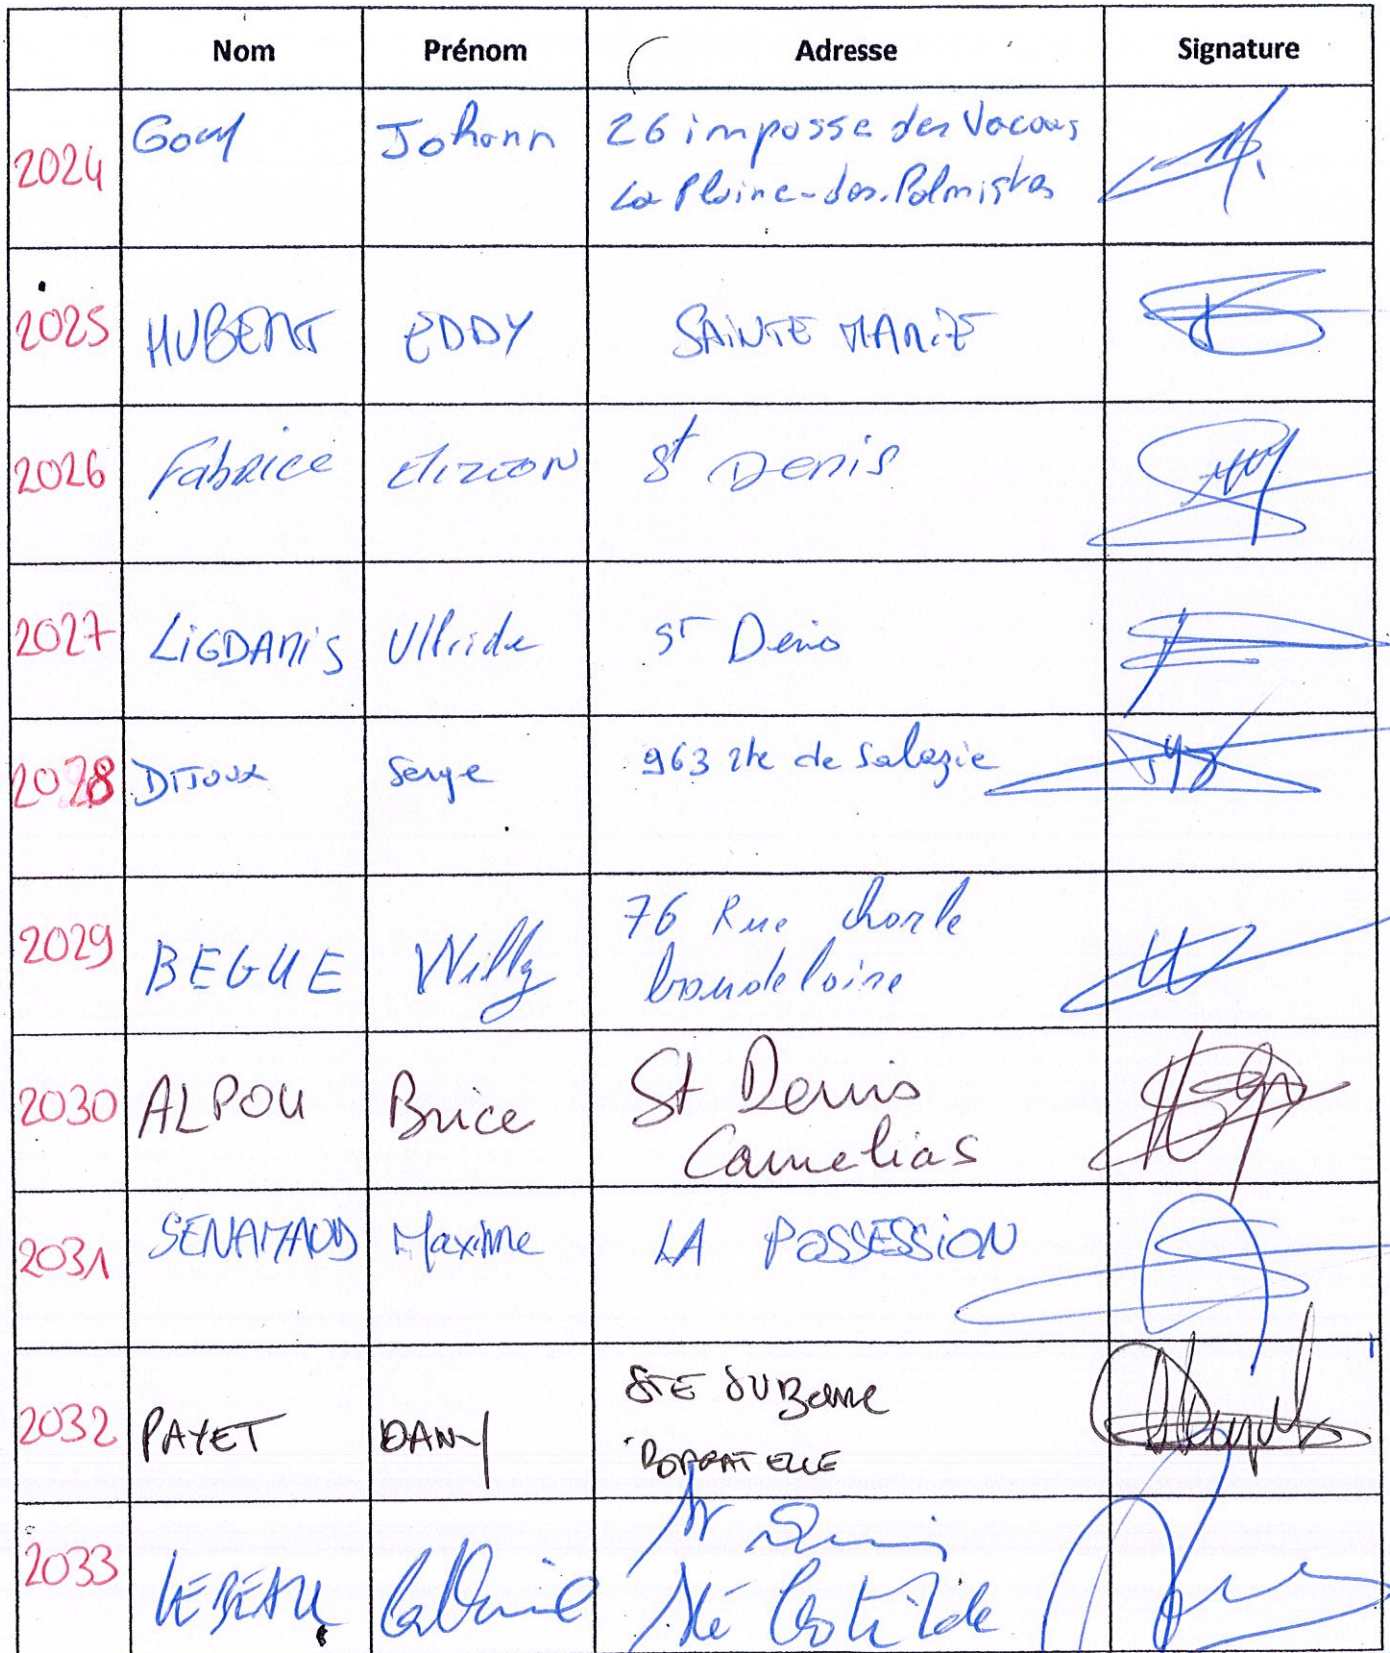 Nom Prénom Adresse Signature
2024 Johann 26 impasse des Vacoas
La Plaine-des-Palmistes
2025 HUBERT EDDY SAINTE MARIE
2026 Fabrice ELIZEON St Denis
2027 LIGDAMIS ST Denis
2028 DIJOUX Serge 963 rte de Salazie
2029 BEGUE Willy 76 Rue charle
baudelaire
2030 ALPOU Brice St Denis
Camelias
2031 SENAMAUD Maxime LA POSSESSION
2032 PAYET DANY STE SUZanne
BAGATELLE
2033 LEBEAU St Denis
Ste Clotilde